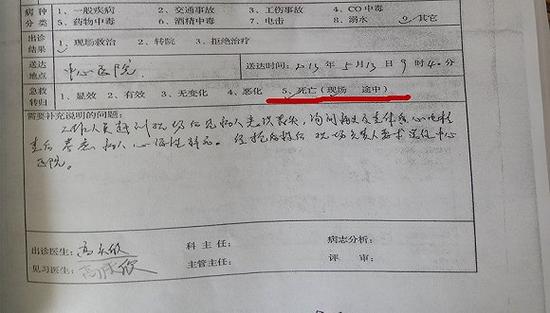 病种 1、一般疾病 2、交通事故 3、工伤事故 4、CO中毒
分类 5、药物中毒 6、酒精中毒 7、电击 8、溺水 9、其它
出诊结果 1、现场救治 2、转院 3、拒绝治疗
送达地点 中心医院 送达时间:2015年5月13日9时40分
急救转归 1、显效 2、有效 3、无变化 4、恶化 5、死亡(现场 途中)
需要补充说明的问题:
工作人员赶到现场后见病人意识丧失,询问病史
查后考虑病人心源性猝死。经抢救后 现场负责人要求送往中心
医院。
出诊医生: 科主任: 病志分析:
见习医生: 主管主任: 评审: